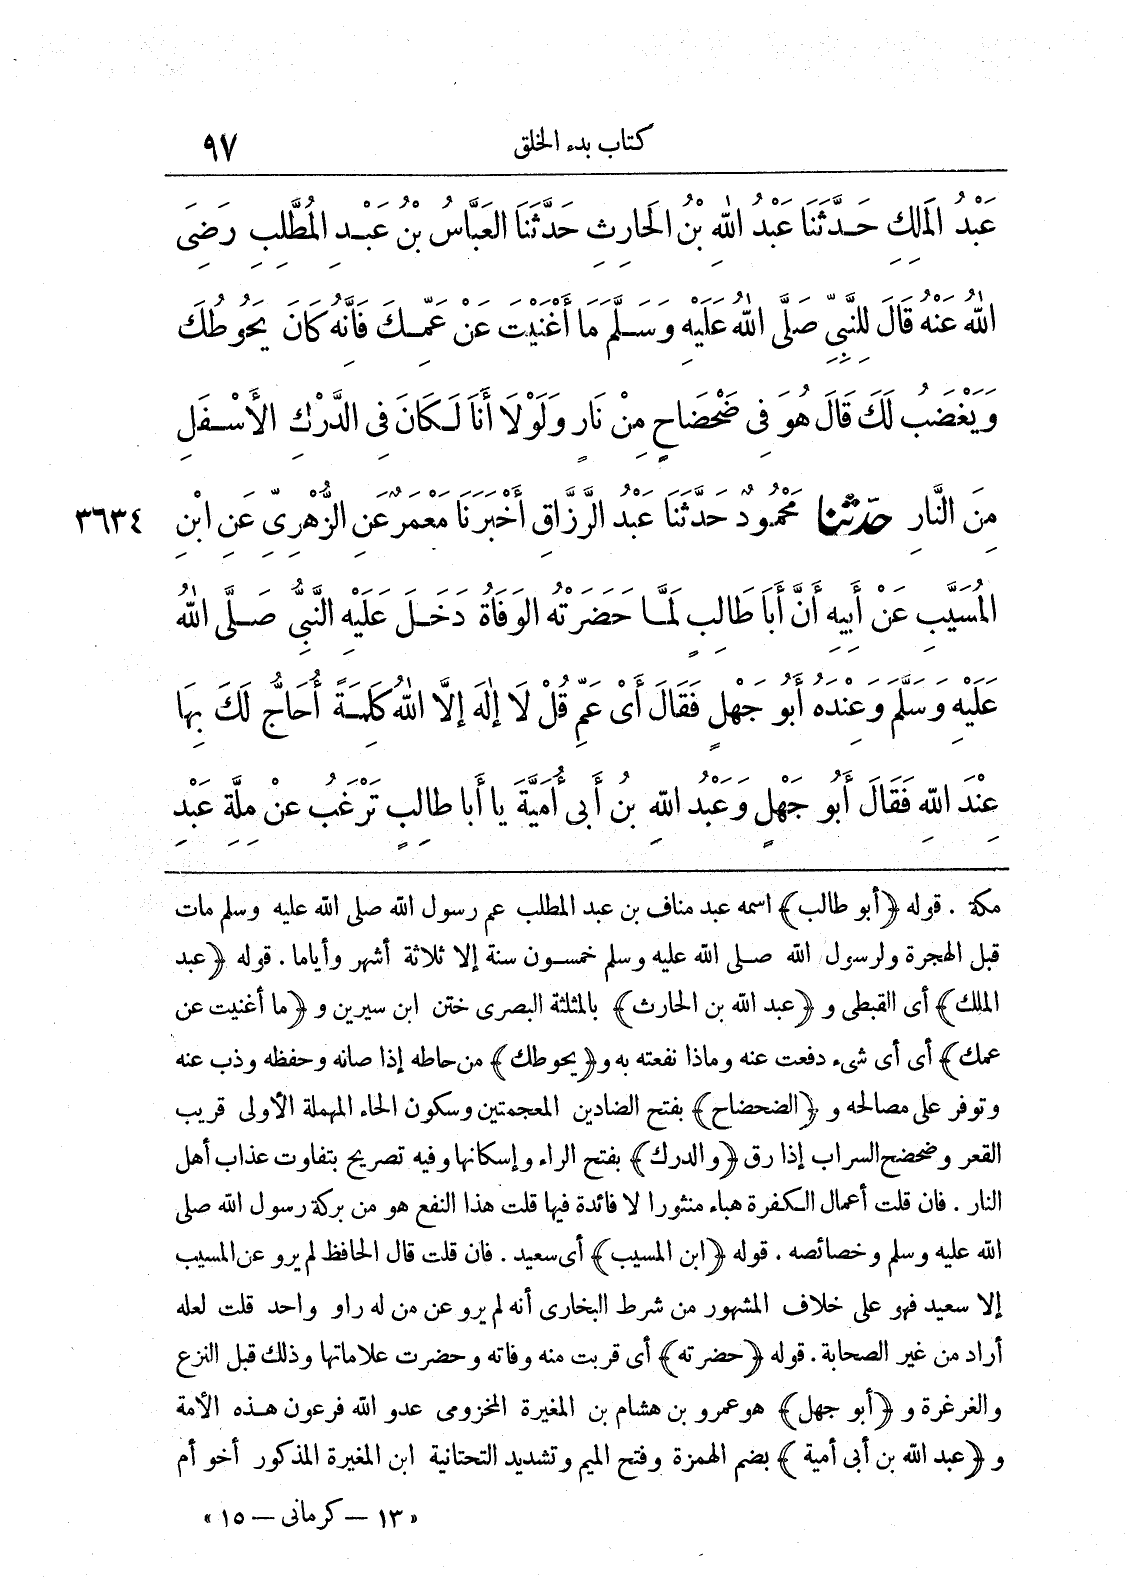 كتاب بدء الخلق ٩٧
عَبْدُ المَلِكِ حَدَّثَنَا عَبْدُ اللهِ بْنُ الحَارِثِ حَدَّثَنَا العَبَّاسُ بْنُ عَبْدِ المُطَّلِبِ رَضِيَ
اللهُ عَنْهُ قَالَ لِلنَّبِيِّ صَلَّى اللهُ عَلَيْهِ وَسَلَّمَ ما أَغْنَيْتَ عَنْ عَمِّكَ فَانَّهُ كَانَ يَحُوطُكَ
وَيَغْضَبُ لَكَ قَالَ هُوَ فِى ضَحْضَاحٍ مِنْ نَارٍ وَلَوْلَا أَنَا لَكَانَ فِى الدَّرْكِ الأَسْفَلِ
مِنَ النَّارِ حدّثنا مَحْمُودٌ حَدَّثَنَا عَبْدُ الرَّزَّاقِ أَخْبَرَنَا مَعْمَرٌ عَنِ الزُّهْرِىِّ عَنِ ابْنِ ٣٦٣٤
المُسَيَّبِ عَنْ أَبِيهِ أَنَّ أَبَا طَالِبٍ لَمَّا حَضَرَتْهُ الوَفَاةُ دَخَلَ عَلَيْهِ النَّبِىُّ صَلَّى اللهُ
عَلَيْهِ وَسَلَّمَ وَعِنْدَهُ أَبُو جَهْلٍ فَقَالَ أَىْ عَمِّ قُلْ لَا إِلٰهَ إلَّا اللهُ كَلِمَةً أُحَاجُّ لَكَ بِهَا
عِنْدَ اللهِ فَقَالَ أَبُو جَهْلٍ وَعَبْدُ اللهِ بنُ أَبِى أُمَيَّةَ يا أَبا طالِبٍ تَرْغَبُ عنْ مِلَّةِ عَبْدِ
مكة . قوله ﴿أبو طالب﴾ اسمه عبد مناف بن عبد المطلب عم رسول الله صلى الله عليه وسلم مات
قبل الهجرة ولرسول الله صلى الله عليه وسلم خمسون سنة إلا ثلاثة أشهر وأياما . قوله ﴿عبد
الملك﴾ أى القبطى و ﴿عبد الله بن الحارث﴾ بالمثلثة البصرى ختن ابن سيرين و ﴿ما أغنيت عن
عمك﴾ أى أى شىء دفعت عنه وماذا نفعته به و﴿يحوطك﴾ من حاطه إذا صانه وحفظه وذب عنه
وتوفر على مصالحه و ﴿الضحضاح﴾ بفتح الضادين المعجمتين وسكون الحاء المهملة الأولى قريب
القعر وضحضح السراب إذا رق ﴿والدرك﴾ بفتح الراء وإسكانها وفيه تصريح بتفاوت عذاب أهل
النار . فان قلت أعمال الكفرة هباء منثورا لا فائدة فيها قلت هذا النفع هو من بركة رسول الله صلى
الله عليه وسلم وخصائصه . قوله ﴿ابن المسيب﴾ أى سعيد . فان قلت قال الحافظ لم يرو عن المسيب
إلا سعيد فهو على خلاف المشهور من شرط البخارى أنه لم يرو عن من له راو واحد قلت لعله
أراد من غير الصحابة . قوله ﴿حضرته﴾ أى قربت منه وفاته وحضرت علاماتها وذلك قبل النزع
والغرغرة و ﴿أبو جهل﴾ هو عمرو بن هشام بن المغيرة المخزومى عدو الله فرعون هذه الأمة
و ﴿عبد الله بن أبى أمية﴾ بضم الهمزة وفتح الميم وتشديد التحتانية ابن المغيرة المذكور أخو أم
« ١٣ – كرمانى – ١٥ »